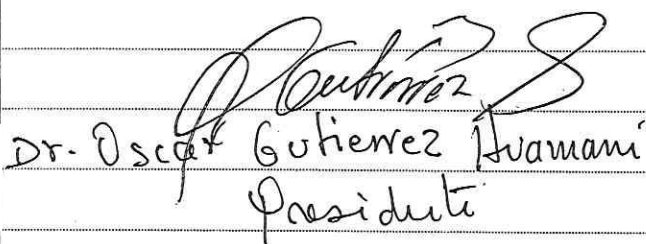 Gutiérrez
Dr. Oscar Gutierrez Huamani
Presidente